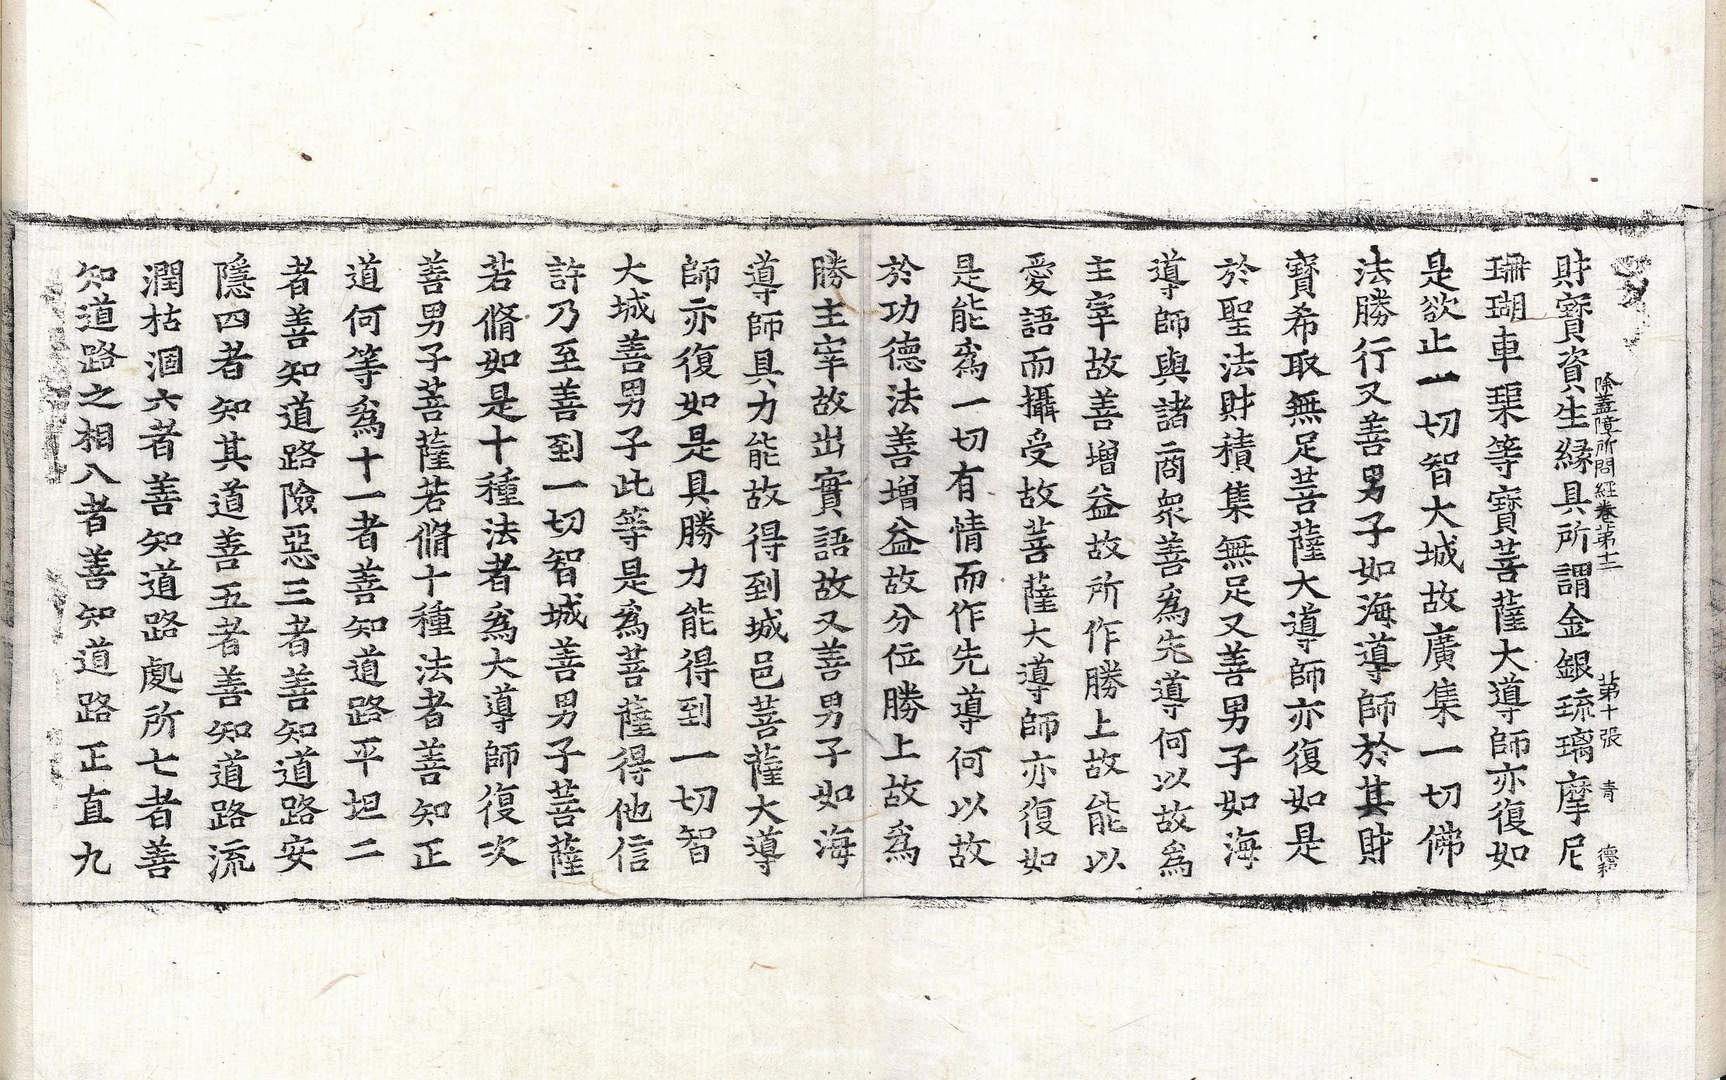 除蓋障所問經卷第十二 第十張 青
財寶資生縁具所謂金銀琉璃摩尼
珊瑚車璖等寶菩薩大導師亦復如
是欲止一切智大城故廣集一切佛
法勝行又善男子如海導師於其財
寶希取無足菩薩大導師亦復如是
於聖法財積集無足又善男子如海
導師與諸商衆善爲先導何以故爲
主宰故善增益故所作勝上故能以
愛語而攝受故菩薩大導師亦復如
是能爲一切有情而作先導何以故
於功德法善增益故分位勝上故爲
勝主宰故出實語故又善男子如海
導師具力能故得到城邑菩薩大導
師亦復如是具勝力能得到一切智
大城善男子此等是爲菩薩得他信
許乃至善到一切智城善男子菩薩
若脩如是十種法者爲大導師復次
善男子菩薩若脩十種法者善知正
道何等爲十一者善知道路平坦二
者善知道路險惡三者善知道路安
隱四者知其道善五者善知道路流
潤枯涸六者善知道路處所七者善
知道路之相八者善知道路正直九